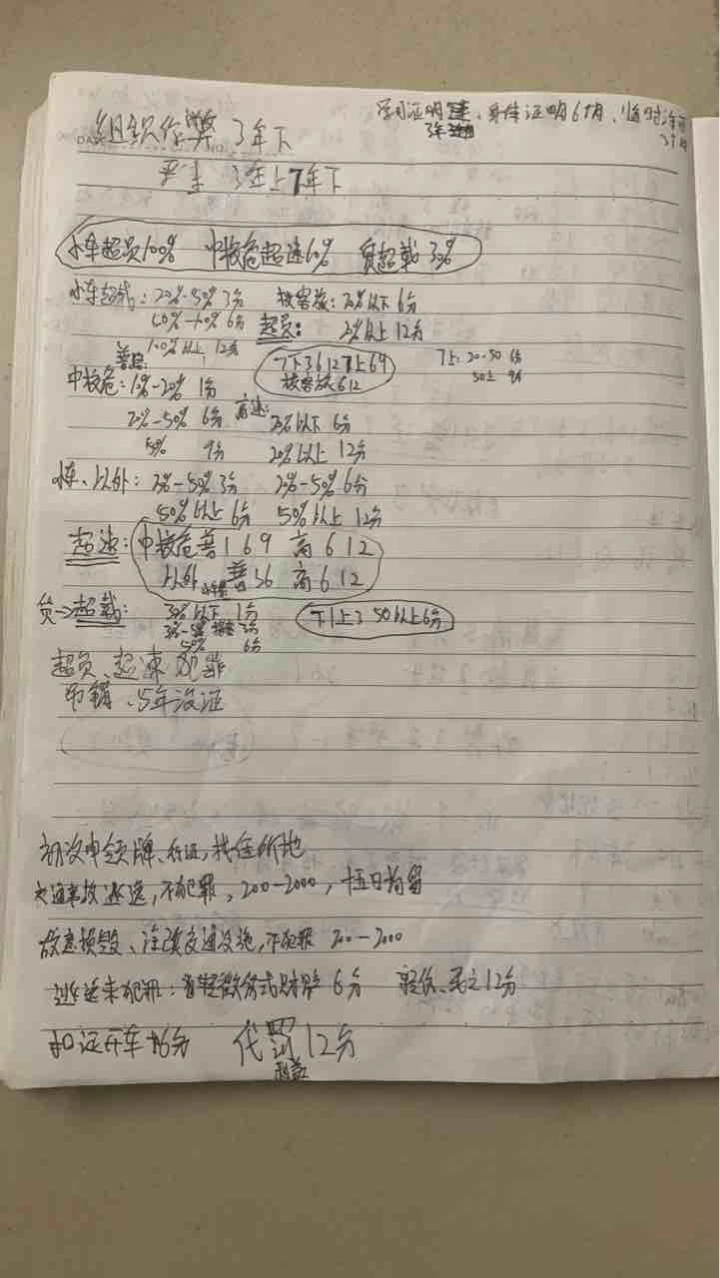 学习证明 3年，身体证明6个月，临时
组织作弊 3年下
DATE NO.
严重 3年上7年下
小车超员100% 中校危超速60% 货超载30%
小车超员：20%-50% 3分 校客旅：20%以下 6分
50%-100% 6分 超员： 20%以上 12分
100%以上 12分
普路： 7下3 6 12 7上6 9 7上：20-50 6分
校客旅612 50上 9分
中校危：1%-20% 1分
20%-50% 6分 高速：20%以下 6分
50% 9分 20%以上 12分
小车、以外：20%-50% 3分 20%-50% 6分
50%以上 6分 50%以上 12分
超速：中校危普1 6 9 高6 12
以外 普36 高6 12
货→超载：30%以下 1分 下1上3 50以上6分
30%-50% 3分
50% 6分
超员、超速 犯罪
吊销、5年没证
初次申领牌、行证，找住所地
交通事故逃逸，不犯罪，200-2000，十五日拘留
故意损毁、涂改交通设施，不犯罪 200-2000
逃逸未犯罪：有轻微伤或财产 6分 轻伤、死亡12分
扣证开车 6分 代罚12分